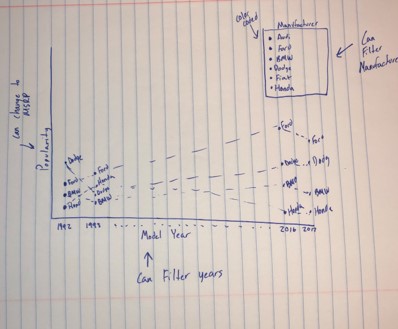 color
coded
Manufacturer
Audi
Ford
BMW
Dodge
Fiat
Honda
Can
Filter
Manufacturer
can change to
MSRP
Popularity
Dodge
Ford
BMW
Ford
Honda
Dodge
BMW
Ford
Ford
Dodge
Dodg
BMW
BMW
Honda
Honda
1992
1993
2016
2017
Model Year
Can Filter years